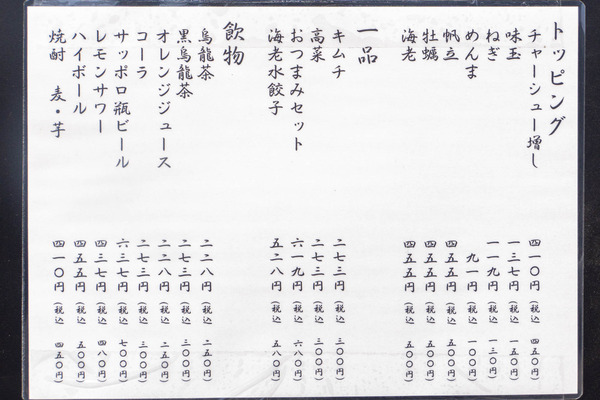 トッピング
チャーシュー増し 四一〇円(税込 四五〇円)
味玉 一三七円(税込 一五〇円)
ねぎ 一一九円(税込 一三〇円)
めんま 九一円(税込 一〇〇円)
帆立 四五五円(税込 五〇〇円)
牡蠣 四五五円(税込 五〇〇円)
海老 四五五円(税込 五〇〇円)
一品
キムチ 二七三円(税込 三〇〇円)
高菜 二七三円(税込 三〇〇円)
おつまみセット 六一九円(税込 六八〇円)
海老水餃子 五二八円(税込 五八〇円)
飲物
烏龍茶 二二八円(税込 二五〇円)
黒烏龍茶 二七三円(税込 三〇〇円)
オレンジジュース 二二八円(税込 二五〇円)
コーラ 二七三円(税込 三〇〇円)
サッポロ瓶ビール 六三七円(税込 七〇〇円)
レモンサワー 四三七円(税込 四八〇円)
ハイボール 四五五円(税込 五〇〇円)
焼酎 麦・芋 四一〇円(税込 四五〇円)